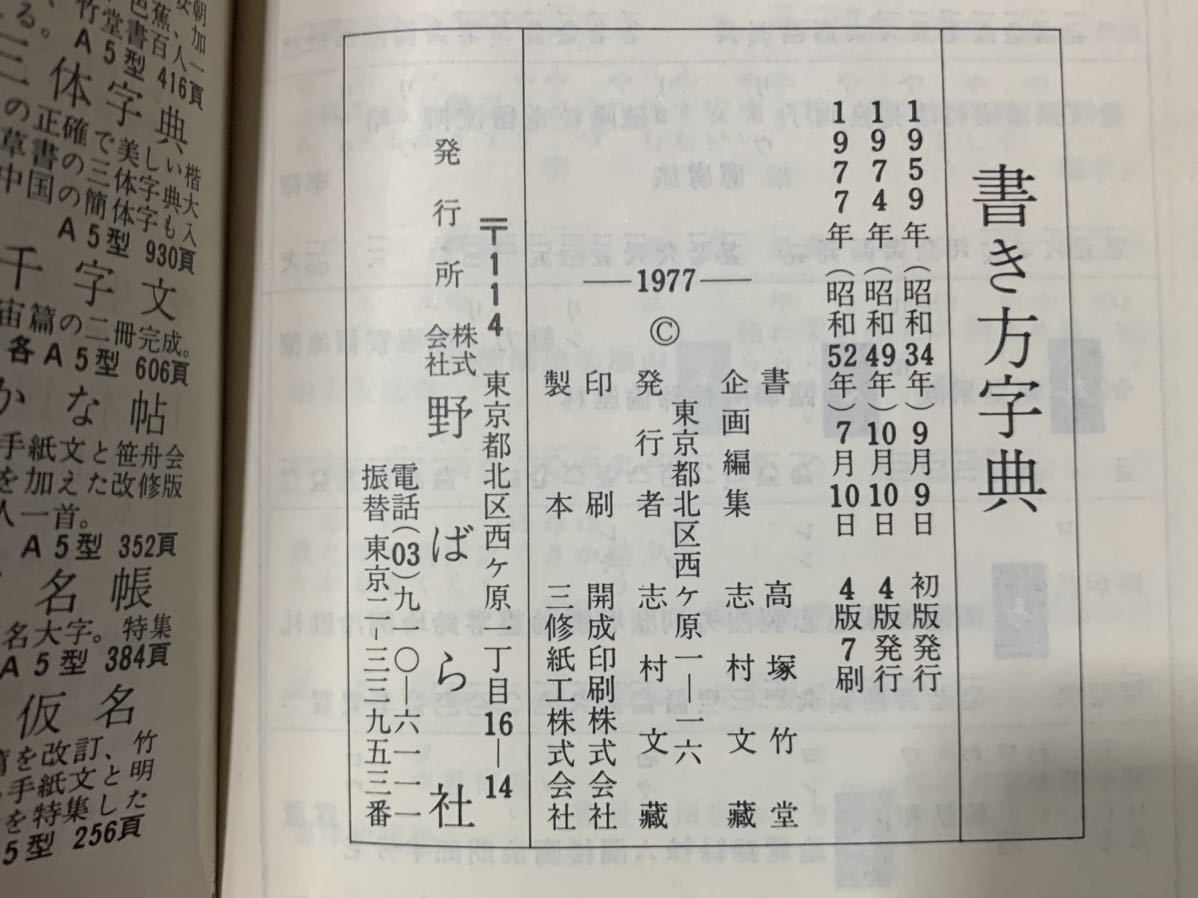 書き方字典
1959年(昭和34年)9月9日 初版発行
1974年(昭和49年)10月10日 4版発行
1977年(昭和52年)7月10日 4版7刷
書 高塚竹堂
企画編集 志村文藏
東京都北区西ヶ原一―一六
発行者 志村文藏
印刷 開成印刷株式会社
製本 三修紙工株式会社
―1977―
©
〒114 東京都北区西ヶ原一丁目16―14
発行所 株式会社 野ばら社
電話(03)九一〇―六一一一
振替 東京二―三三九五三番
三体字典
の正確で美しい楷
草書の三体字典大
中国の簡体字も入
A5型 930頁
千字文
宙篇の二冊完成。
各A5型 606頁
かな帖
手紙文と笹舟会
を加えた改修版
人一首。
A5型 352頁
名帳
名大字。特集
A5型 384頁
仮名
を改訂、竹
手紙文と明
を特集した
5型 256頁